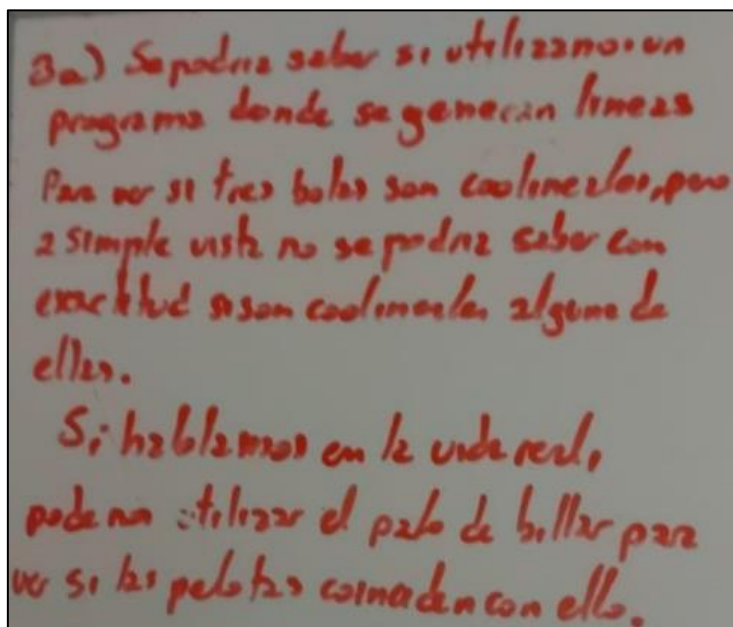 3a) Se podria saber si utilizamos un
programa donde se generan lineas
Para ver si tres bolas son coolineales, pero
a simple vista no se podria saber con
exactitud si son coolineales alguna de
ellas.
Si hablamos en la vida real,
podemos utilizar el palo de billar para
ver si las pelotas coinciden con ello.